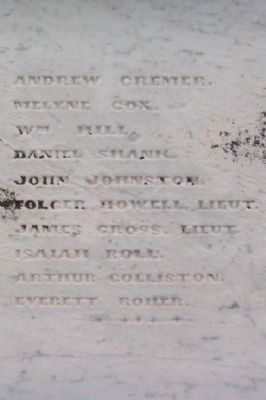 ANDREW CREMER.
MELYNE COX.
WM HILL.
DANIEL SHANK.
JOHN JOHNSTON.
FOLGER HOWELL. LIEUT.
JAMES CROSS. LIEUT.
ISAIAH ROLL.
ARTHUR COLLISTON.
EVERETT ROHER.